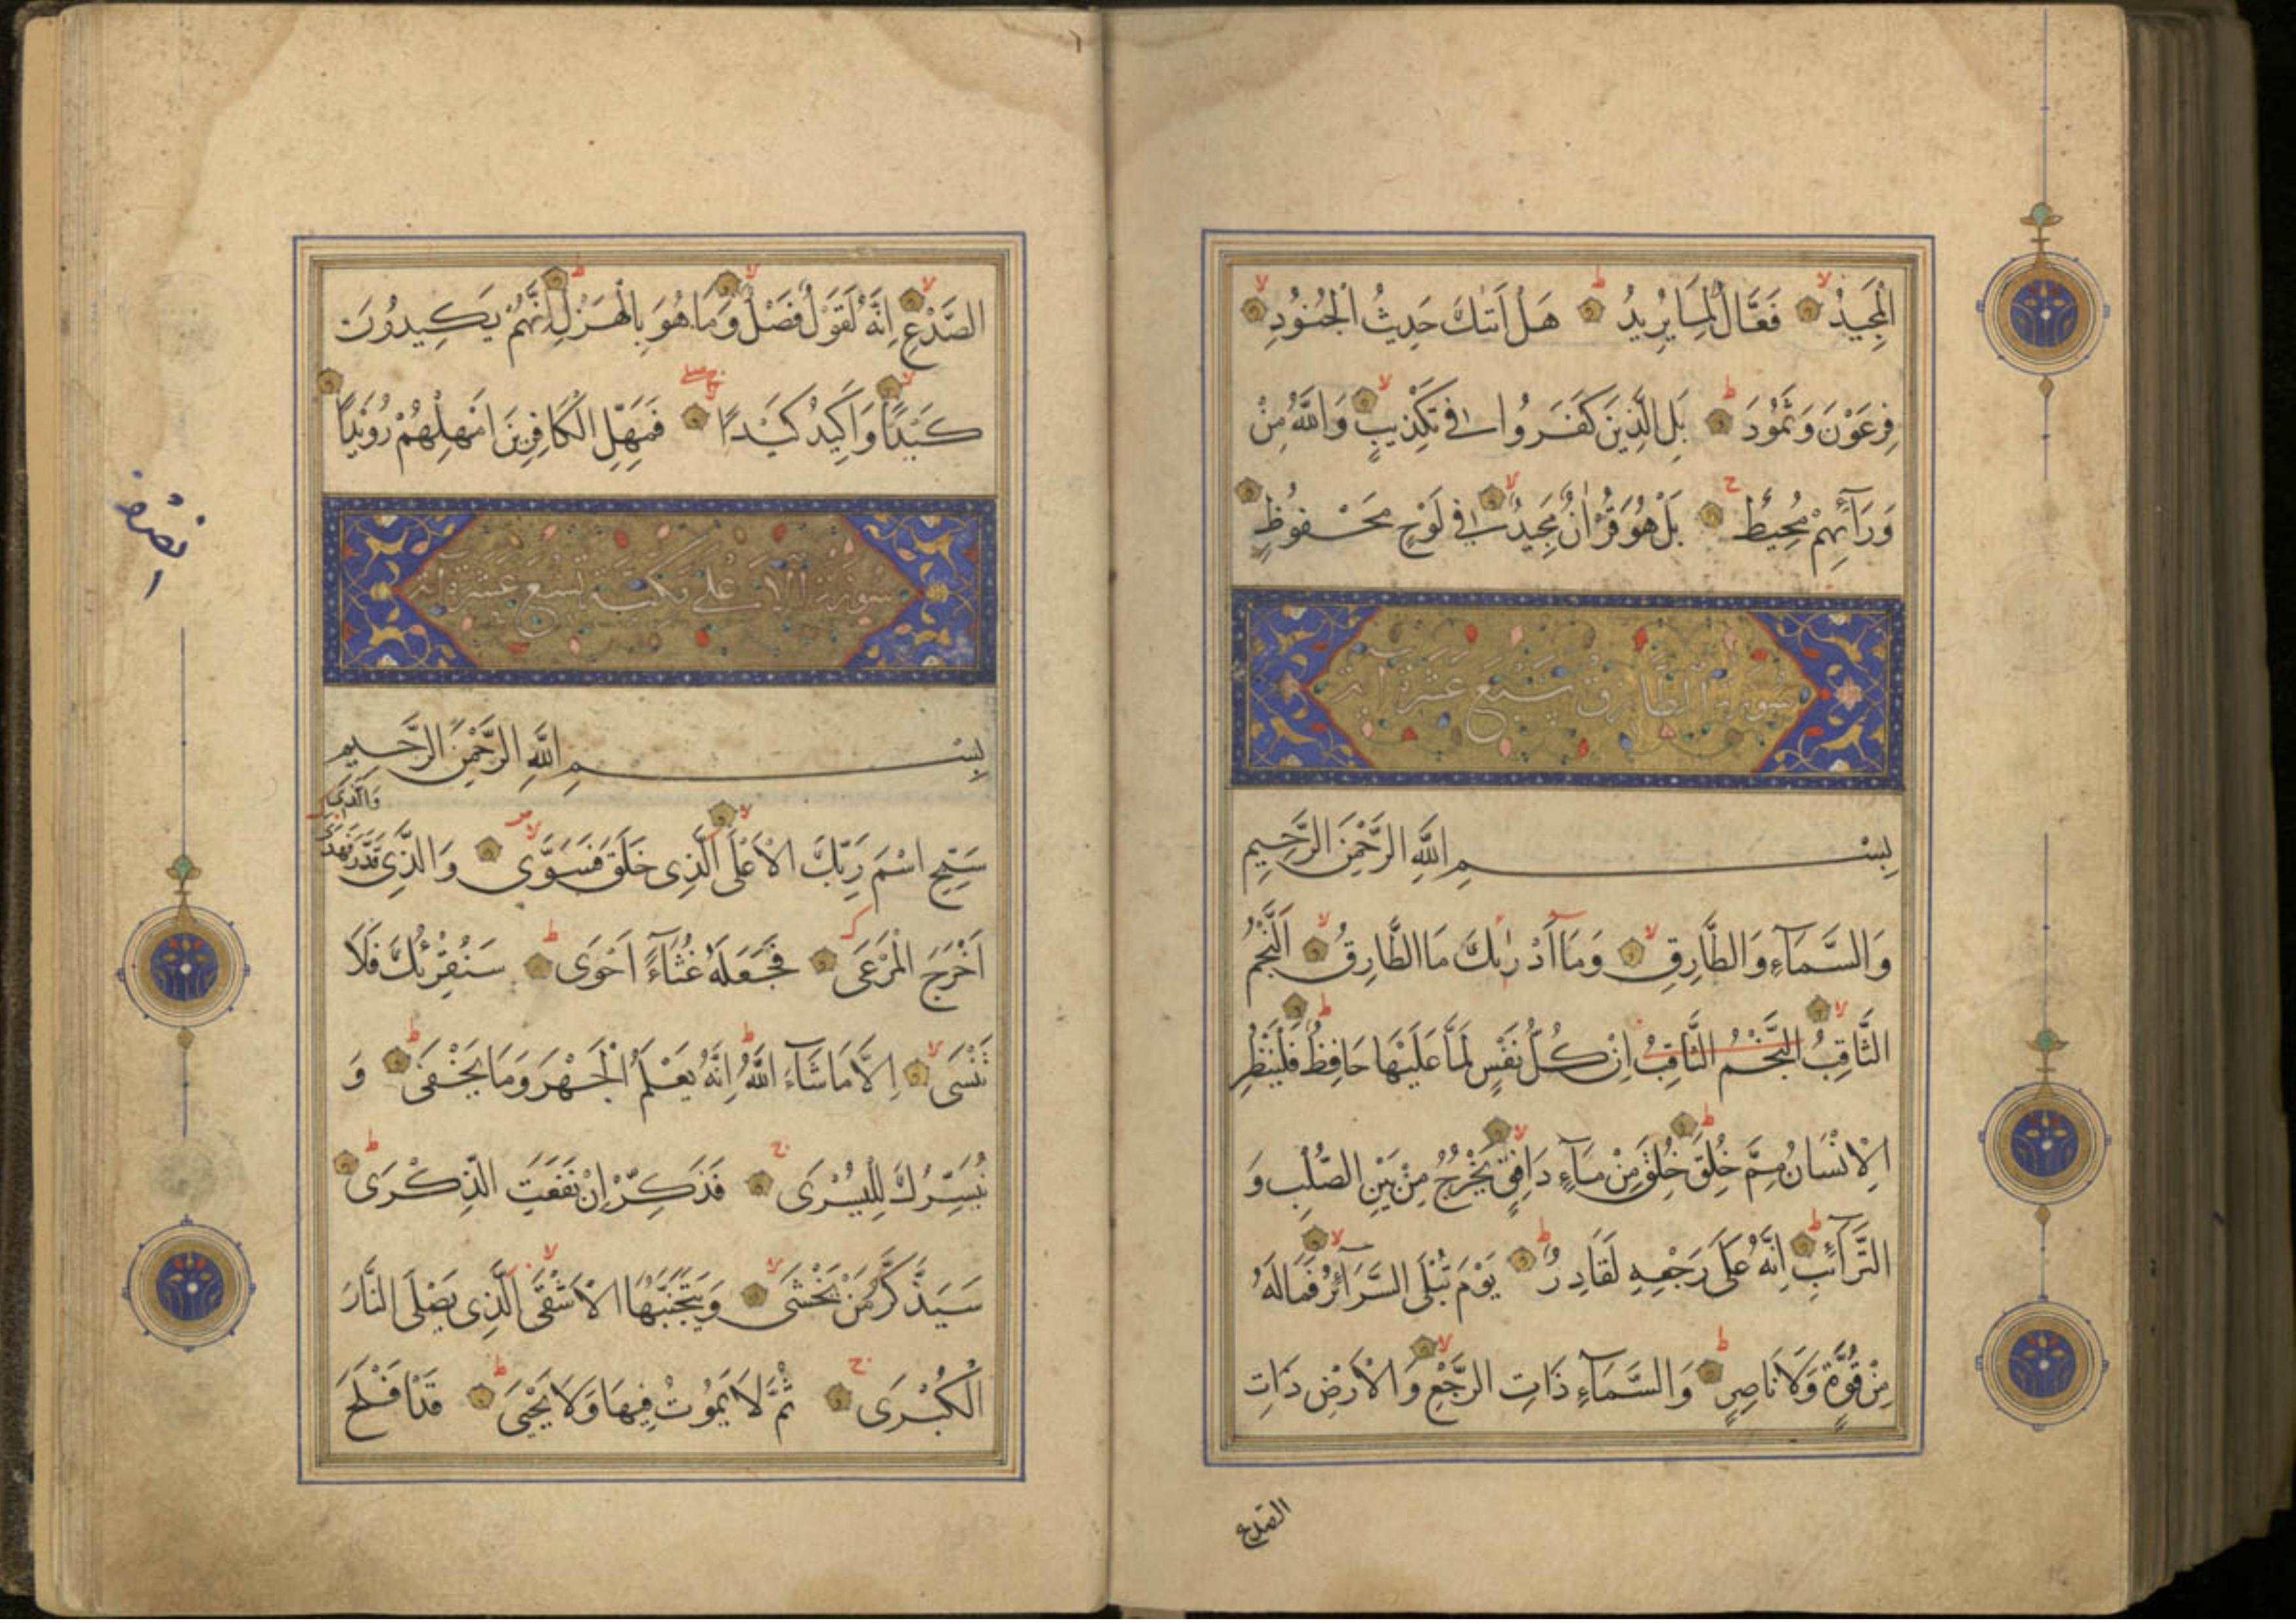 الْمَجِيدُ فَعَّالٌ لِمَا يُرِيدُ هَلْ اَتٰىكَ حَدِيثُ الْجُنُودِ
فِرْعَوْنَ وَثَمُودَ بَلِ الَّذِينَ كَفَرُوا فِي تَكْذِيبٍ وَاللّٰهُ مِنْ
وَرَآئِهِمْ مُحِيطٌ بَلْ هُوَ قُرْاٰنٌ مَجِيدٌ فِي لَوْحٍ مَحْفُوظٍ
سورة الطارق سبع عشرة اية
بِسْمِ اللّٰهِ الرَّحْمٰنِ الرَّحِيمِ
وَالسَّمَآءِ وَالطَّارِقِ وَمَآ اَدْرٰىكَ مَا الطَّارِقُ اَلنَّجْمُ
الثَّاقِبُ النَّجْمُ الثَّاقِبُ اِنْ كُلُّ نَفْسٍ لَمَّا عَلَيْهَا حَافِظٌ فَلْيَنْظُرِ
الْاِنْسَانُ مِمَّ خُلِقَ خُلِقَ مِنْ مَآءٍ دَافِقٍ يَخْرُجُ مِنْ بَيْنِ الصُّلْبِ وَ
التَّرَآئِبِ اِنَّهُ عَلَى رَجْعِهِ لَقَادِرٌ يَوْمَ تُبْلَى السَّرَآئِرُ فَمَالَهُ
مِنْ قُوَّةٍ وَلَا نَاصِرٍ وَالسَّمَآءِ ذَاتِ الرَّجْعِ وَالْاَرْضِ ذَاتِ
الصدع
الصَّدْعِ اِنَّهُ لَقَوْلٌ فَصْلٌ وَمَا هُوَ بِالْهَزْلِ اِنَّهُمْ يَكِيدُونَ
كَيْدًا وَاَكِيدُ كَيْدًا فَمَهِّلِ الْكَافِرِينَ اَمْهِلْهُمْ رُوَيْدًا
سورة الاعلى مكية تسع عشرة اية
بِسْمِ اللّٰهِ الرَّحْمٰنِ الرَّحِيمِ
سَبِّحِ اسْمَ رَبِّكَ الْاَعْلَى الَّذِى خَلَقَ فَسَوَّى وَالَّذِى قَدَّرَ فَهَدَى وَالَّذِى
اَخْرَجَ الْمَرْعَى فَجَعَلَهُ غُثَآءً اَحْوَى سَنُقْرِئُكَ فَلَا
تَنْسَى اِلَّا مَا شَآءَ اللّٰهُ اِنَّهُ يَعْلَمُ الْجَهْرَ وَمَا يَخْفَى وَ
نُيَسِّرُكَ لِلْيُسْرَى فَذَكِّرْ اِنْ نَفَعَتِ الذِّكْرَى
سَيَذَّكَّرُ مَنْ يَخْشَى وَيَتَجَنَّبُهَا الْاَشْقَى اَلَّذِى يَصْلَى النَّارَ
الْكُبْرَى ثُمَّ لَا يَمُوتُ فِيهَا وَلَا يَحْيَى قَدْ اَفْلَحَ